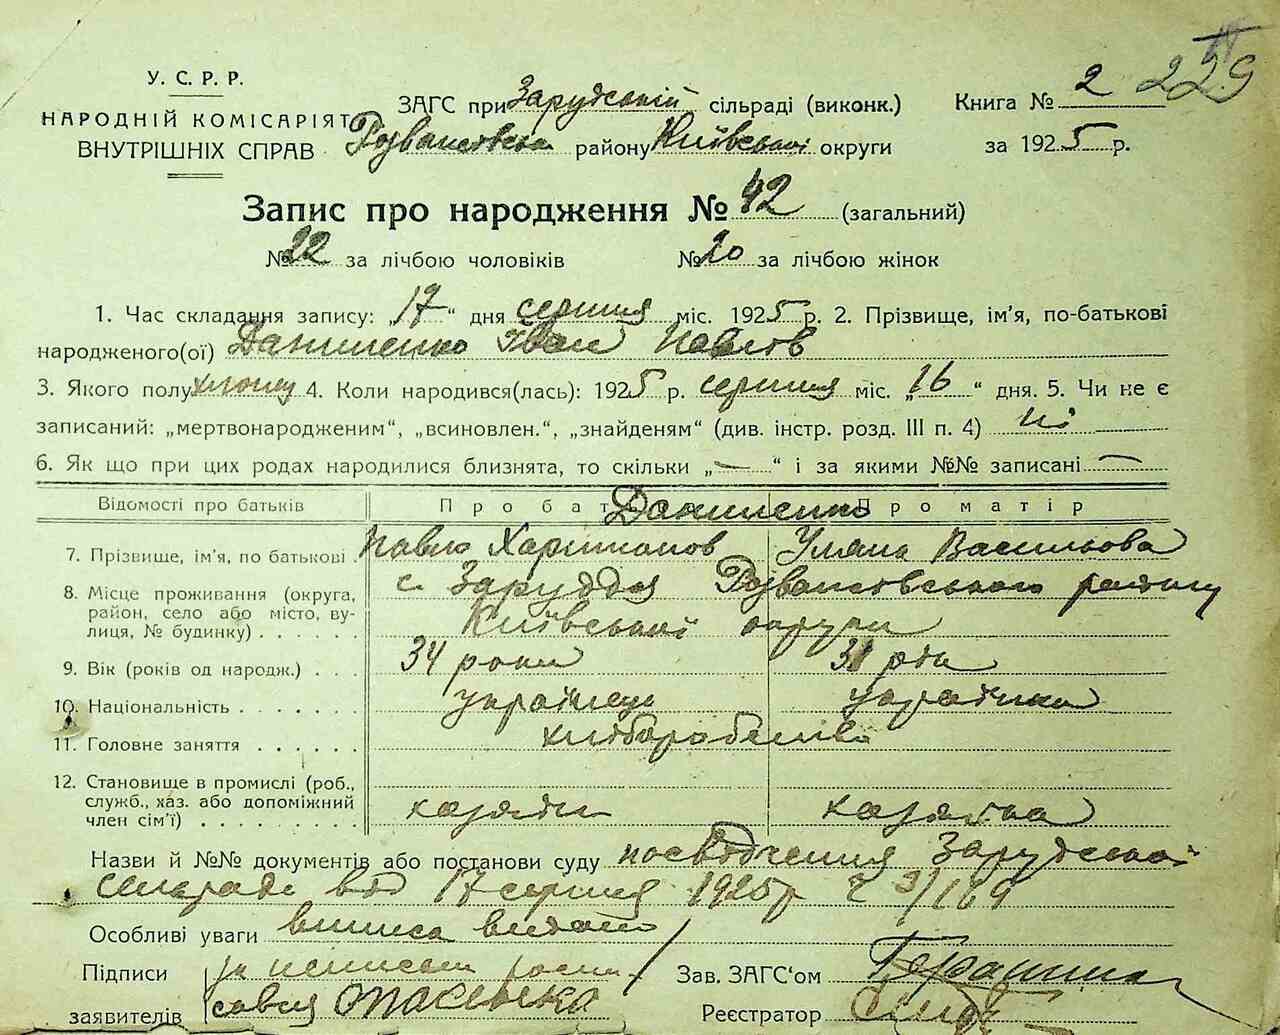 У. С. Р. Р.
НАРОДНІЙ КОМІСАРІЯТ
ВНУТРІШНІХ СПРАВ
ЗАГС при Зарудській сільраді (виконк.)
Розважівська району Київської округи
Книга № 2 229
за 1925 р.
Запис про народження № 42 (загальний)
№ 22 за лічбою чоловіків № 20 за лічбою жінок
1. Час складання запису: „17“ дня серпня міс. 1925 р. 2. Прізвище, ім’я, по-батькові
народженого(ої) Даниленко Іван Павлов
3. Якого полу хлопец 4. Коли народився(лась): 1925 р. серпня міс. „16“ дня. 5. Чи не є
записаний: „мертвонародженим“, „всиновлен.“, „знайденям“ (див. інстр. розд. III п. 4) ні
6. Як що при цих родах народилися близнята, то скільки „—“ і за якими №№ записані —
Відомості про батьків Про бат Про матір
Даниленко
7. Прізвище, ім’я, по батькові Павло Харитонов Уляна Васильова
8. Місце проживання (округа, район, село або місто, вулиця, № будинку) с. Заруддя Розважівського району
Київської округи
9. Вік (років од народж.) 34 роки 31 рік
10. Національність українець українка
11. Головне заняття хліборобство
12. Становище в промислі (роб., служб., хаз. або допоміжний член сім’ї) хазяїн хазяйка
Назви й №№ документів або постанови суду посвідчення Зарудської
сільради від 17 серпня 1925 р
Особливі уваги випись видано
Підписи
заявителів
Зав. ЗАГС‘ом
Реєстратор